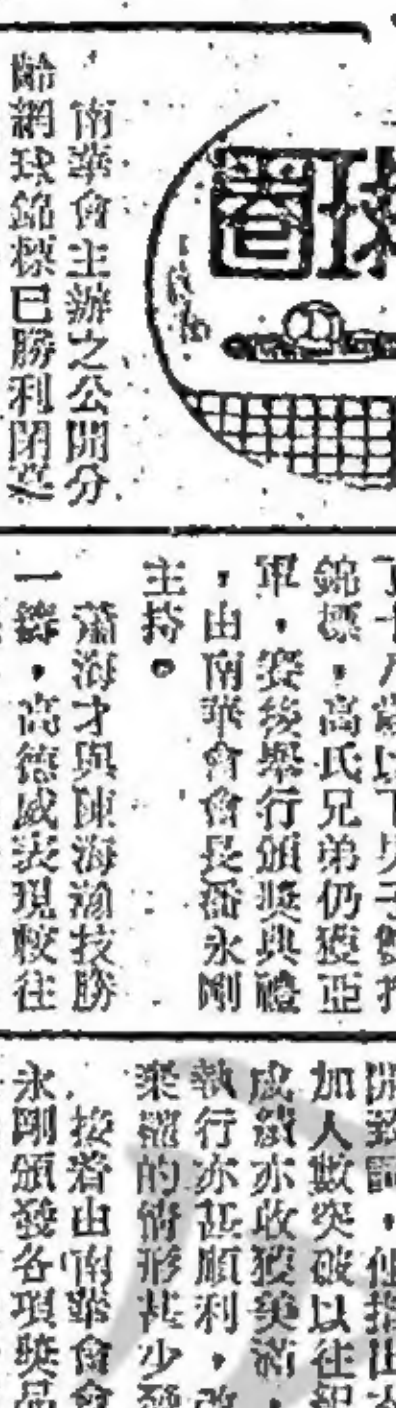 球圈
南華會主辦之公開分
齡網球錦標已勝利閉
十八歲以下男子雙打
錦標，高氏兄弟仍獲亞
軍，賽後舉行頒獎典禮
，由南華會會長潘永剛
主持。
蕭海才與陳海瀚技勝
一籌，高德威表現較往
開致詞，他指出
加人數突破以往紀
成績亦收獲美滿，
執行亦甚順利，改
棄權的情形甚少發
按着由南華會會
永剛頒發各項獎品